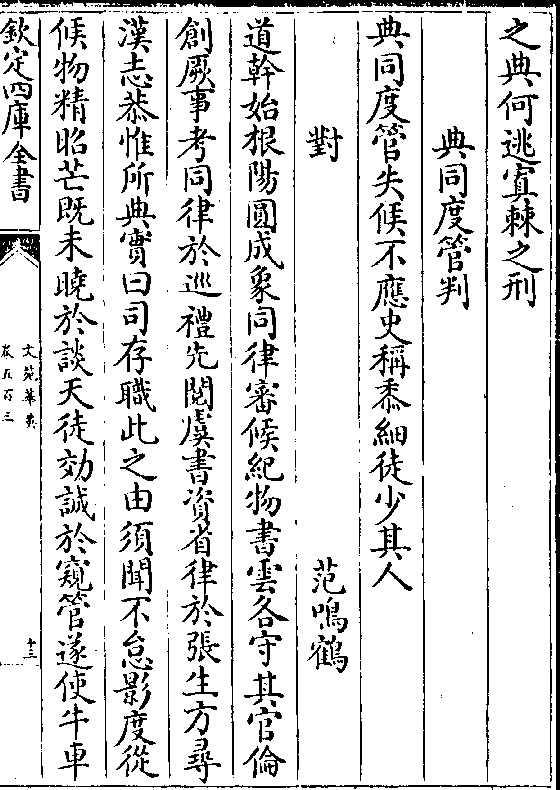 之典何逃寘棘之刑
典同度管判
典同度管失候不應史稱黍細徒少其人
對 范鳴鶴
道幹始根陽圓成象同律審候紀物書雲各守其官倫
創厥事考同律於巡禮先閱虞書資省律於張生方尋
漢志恭惟所典實曰司存職此之由須聞不怠影度從
候物精昭芒既未曉於談天徒効誠於窺管遂使牛車
欽定四庫全書
文苑英華
卷五百三
十三